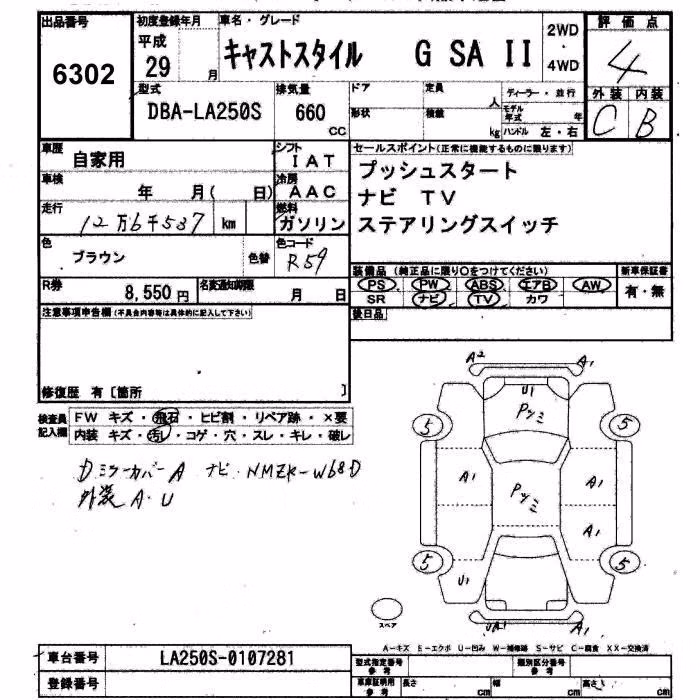 出品番号 初度登録年月 車名・グレード 評価点
6302 平成 29 月 キャストスタイル G SA II 2WD・4WD 4
型式 排気量 ドア 定員 人 ディーラー・並行 外装 内装
DBA-LA250S 660 CC 形状 積載 kg モデル年式 年 C B
ハンドル 左・右
車歴 自家用 シフト IAT セールスポイント(正常に機能するものに限ります)
車検 年 月( 日) 冷房 AAC プッシュスタート
ナビ TV
走行 12万6千537 km 燃料 ガソリン ステアリングスイッチ
色 ブラウン 色替 色コード R59
装備品(純正品に限り○をつけてください) 新車保証書
R券 8,550円 名変通知期限 月 日 PS PW ABS エアB AW 有・無
SR ナビ TV カワ
注意事項申告欄(不具合内容等は具体的に記入して下さい) 後日品
修復歴 有〔箇所 〕
検査員記入欄 FW キズ・飛石・ヒビ割・リペア跡・×要
内装 キズ・汚レ・コゲ・穴・スレ・キレ・破レ
Dミラーカバー A ナビ NMZK-W68D
外装 A・U
A2 A1
U1
Pツミ
5 5
A1 Pツミ A1
A1
5 5
U1
スペア
A1
A-キズ E-エクボ U-凹み W-補修跡 S-サビ C-腐食 XX-交換済
車台番号 LA250S-0107281 型式指定番号 参考 類別区分番号 参考
登録番号 車庫証明用 参考 長さ cm 幅 cm 高さ cm